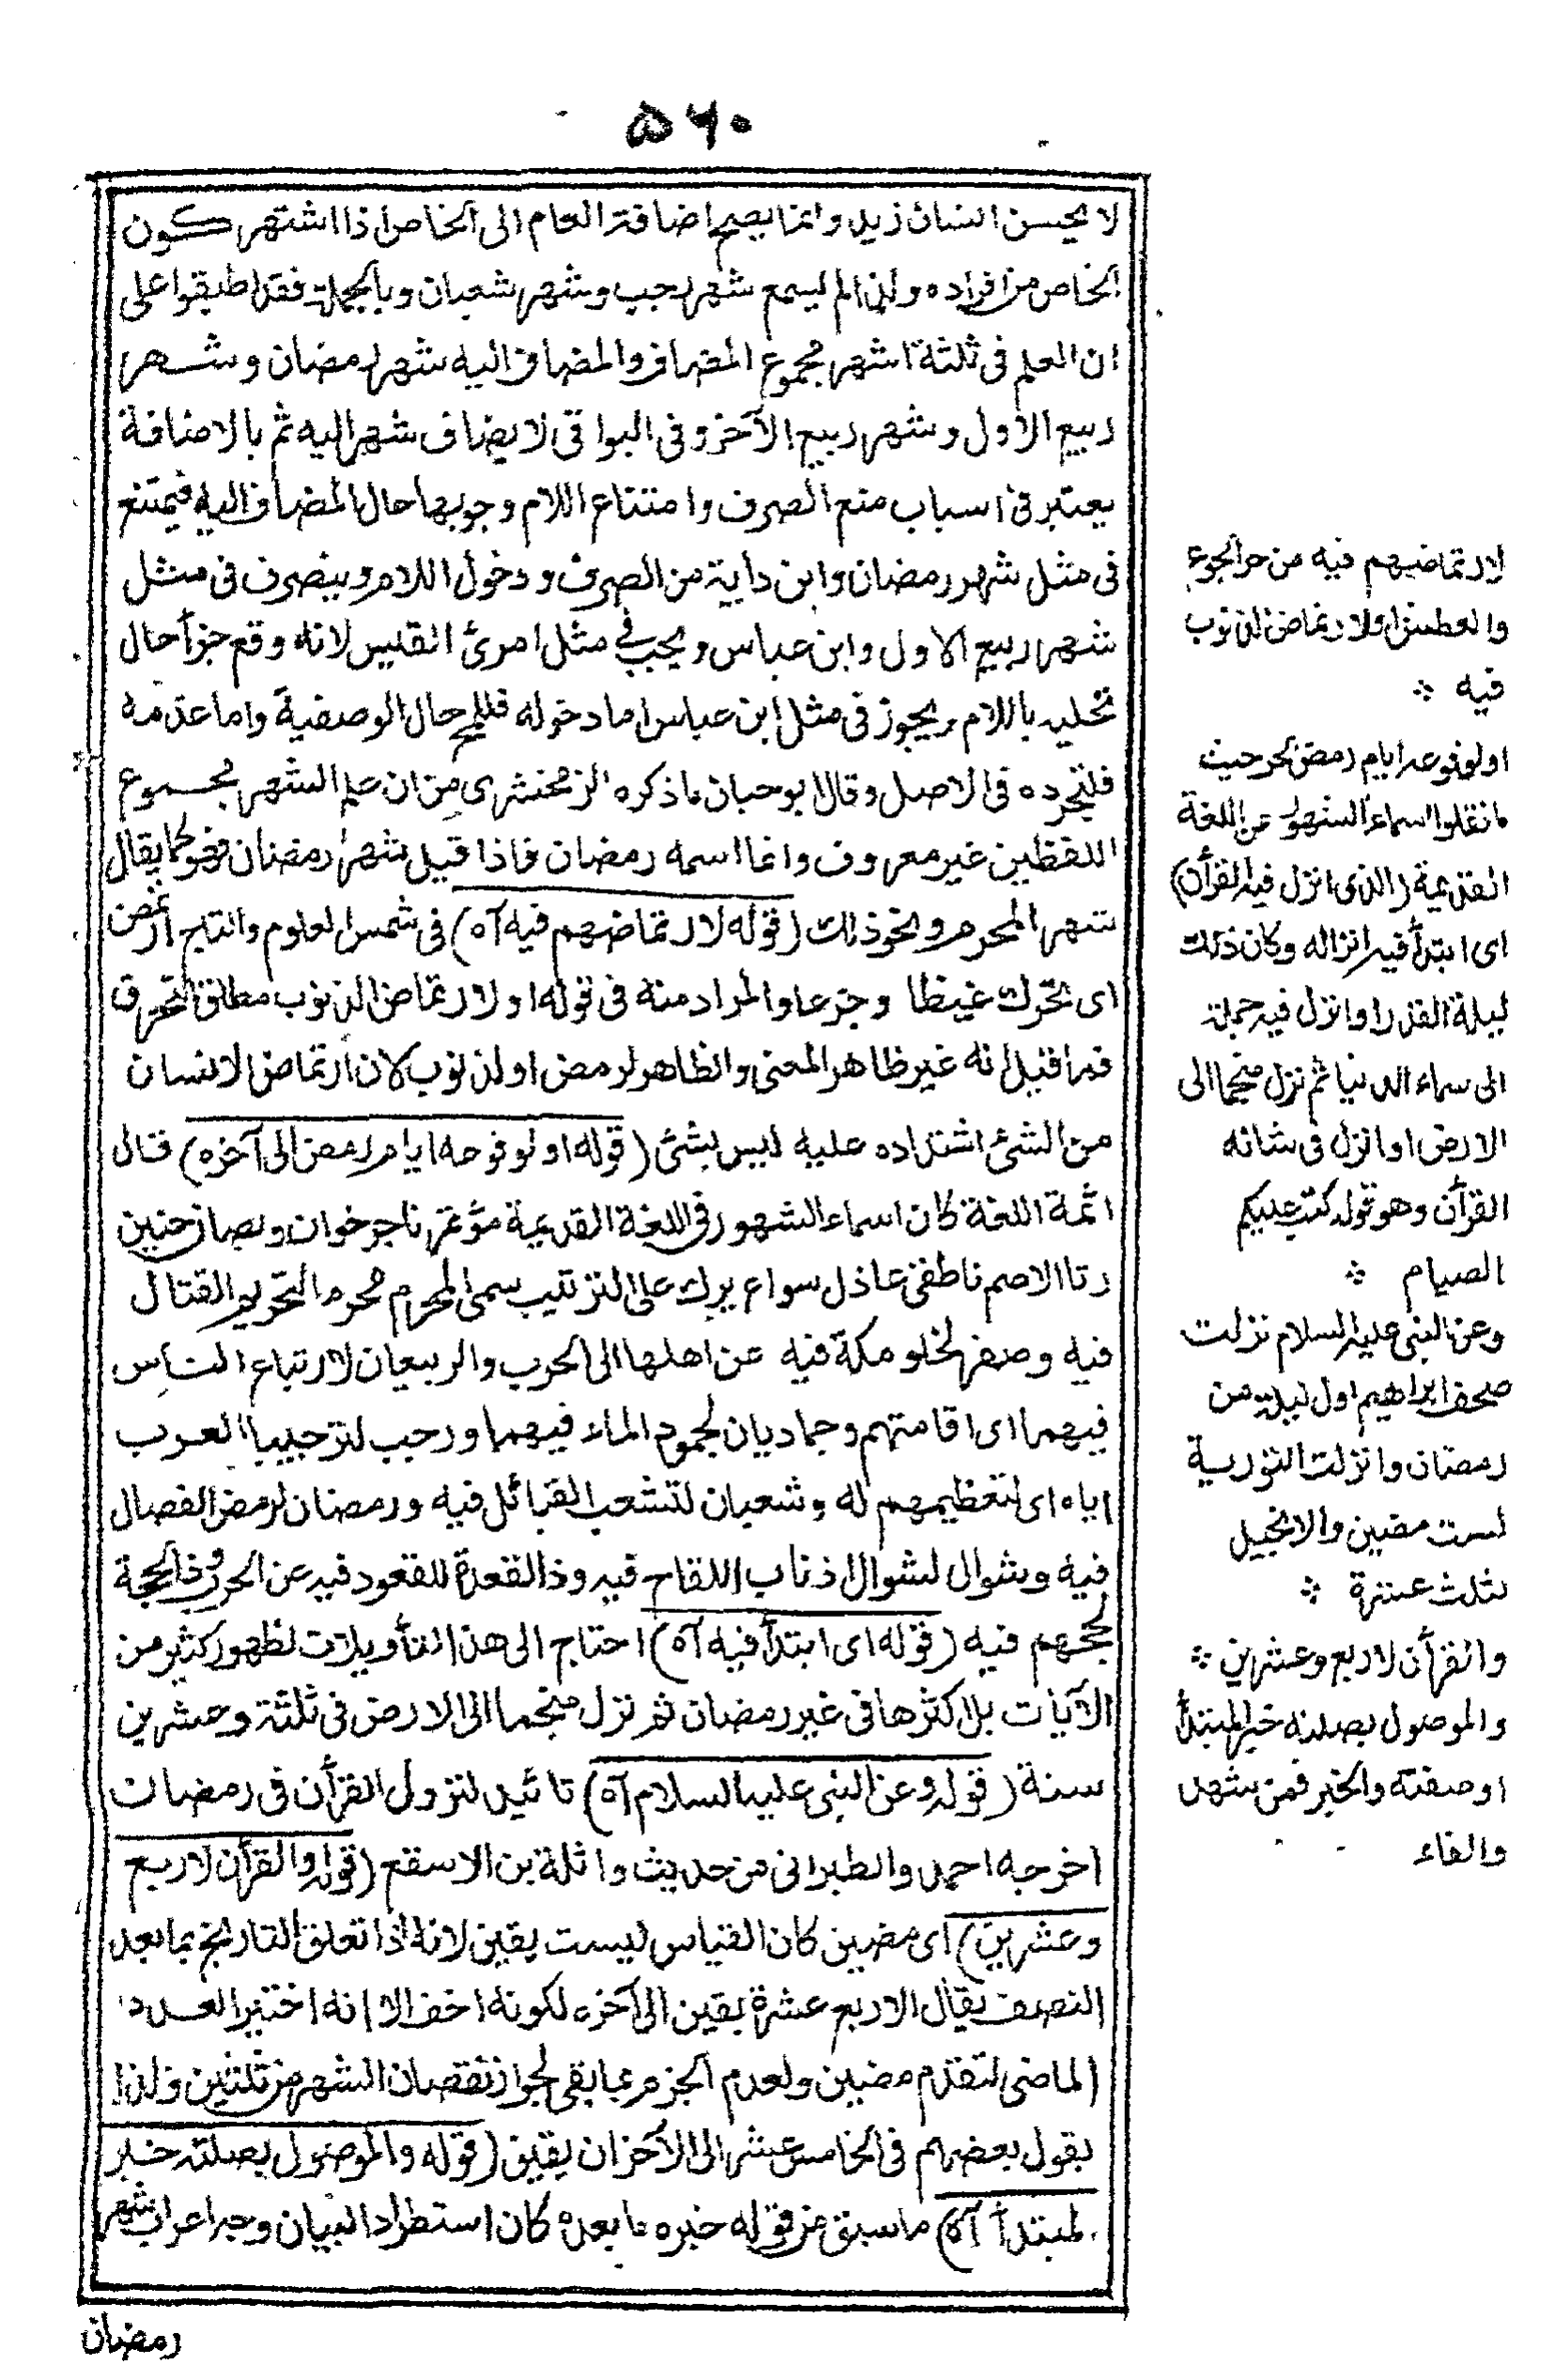 ۵۶۰
لا يحسن انسان زيد وانما يصح اضافة العام الى الخاص اذا اشتهر كون
الخاص من افراده ولذا لم يسمع شهر رجب وشهر شعبان وبالجملة فقد اطبقوا على
ان العلم فى ثلثة اشهر مجموع المضاف والمضاف اليه شهر رمضان وشهر
ربيع الاول وشهر ربيع الآخر وفى البواقى لا يضاف شهر اليه ثم بالاضافة
يعتبر فى اسباب منع الصرف وامتناع اللام وجوبها حال المضاف اليه فيمتنع
فى مثل شهر رمضان وابن داية من الصرف ودخول اللام وينصرف فى مثل
شهر ربيع الاول وابن عباس ويجب فى مثل امرئ القيس لانه وقع جزأ حال
تحليه باللام ويجوز فى مثل ابن عباس اما دخوله فللمح حال الوصفية واما عدمه
فلتجرده فى الاصل وقال ابو حيان ما ذكره الزمخشرى من ان علم الشهر مجموع
اللفظين غير معروف وانما اسمه رمضان فاذا قيل شهر رمضان فهو كما يقال
شهر المحرم ونحو ذلك (قوله لارتماضهم فيه آه) فى شمس العلوم والتاج ارتمض
اى تحرك غيظا وجزعا والمراد منه فى قوله اولارتماض الذنوب مطلق التحرق
فما قيل انه غير ظاهر المعنى والظاهر لرمض اولذنوب لان ارتماض الانسان
من الشئ اشتداده عليه ليس بشئ (قوله او لوقوعه ايام رمض الى آخره) قال
ائمة اللغة كان اسماء الشهور فى اللغة القديمة مؤتمر ناجر خوان وبصان حنين
رنا الاصم ناطق عاذل سواع برك على الترتيب سمى المحرم محرم التحريم القتال
فيه وصفر لخلو مكة فيه عن اهلها الى الحرب والربيعان لارتباع الناس
فيهما اى اقامتهم وجماديان لجمود الماء فيهما ورجب لترجيب العرب
اياه اى لتعظيمهم له وشعبان لتشعب القبائل فيه ورمضان لرمض الفصال
فيه وشوال لشوال اذناب اللقاح فيه وذالقعدة للقعود فيه عن الحرب وذالحجة
لحجهم فيه (قوله اى ابتدأ فيه آه) احتاج الى هذا التأويلات لظهور كثير من
الآيات بل اكثرها فى غير رمضان ثم نزل منجما الى الارض فى ثلثة وعشرين
سنة (قوله وعن النبى عليه السلام آه) تائيد لنزول القرآن فى رمضان
اخرجه احمد والطبرانى من حديث واثلة بن الاسقع (قوله والقرآن لاربع
وعشرين) اى مضين كان القياس ليست بقين لانه اذا تعلق التاريخ بما بعد
النصف يقال الاربع عشرة بقين الى آخره لكونه اخف الا انه اختير العدد
الماضى لتقدم مضين ولعدم الجزم بما بقى لجواز نقصان الشهر من ثلثين ولذا
يقول بعضهم فى الخامس عشر الى الآخر ان بقين (قوله والموصول بصلته خبر
لمبتدأ آه) ما سبق من قوله خبره ما بعده كان استطراد البيان وجه اعراب شهر
رمضان
لارتماضهم فيه من حر الجوع
والعطش اولارتماض الذنوب
فيه ❊
او لوقوعه ايام رمض الحر حيث
ما نقلوا اسماء الشهور عن اللغة
القديمة (الذى انزل فيه القرآن)
اى ابتدأ فيه انزاله وكان ذلك
ليلة القدر او انزل فيه جملة
الى سماء الدنيا ثم نزل منجما الى
الارض او انزل فى شانه
القرآن وهو قوله كتب عليكم
الصيام ❊
وعن النبى عليه السلام نزلت
صحف ابراهيم اول ليلة من
رمضان وانزلت التورية
لست مضين والانجيل
لثلث عشرة ❊
والقرآن لاربع وعشرين ❊
والموصول بصلته خبر المبتدأ
او صفته والخبر فمن شهد
والفاء